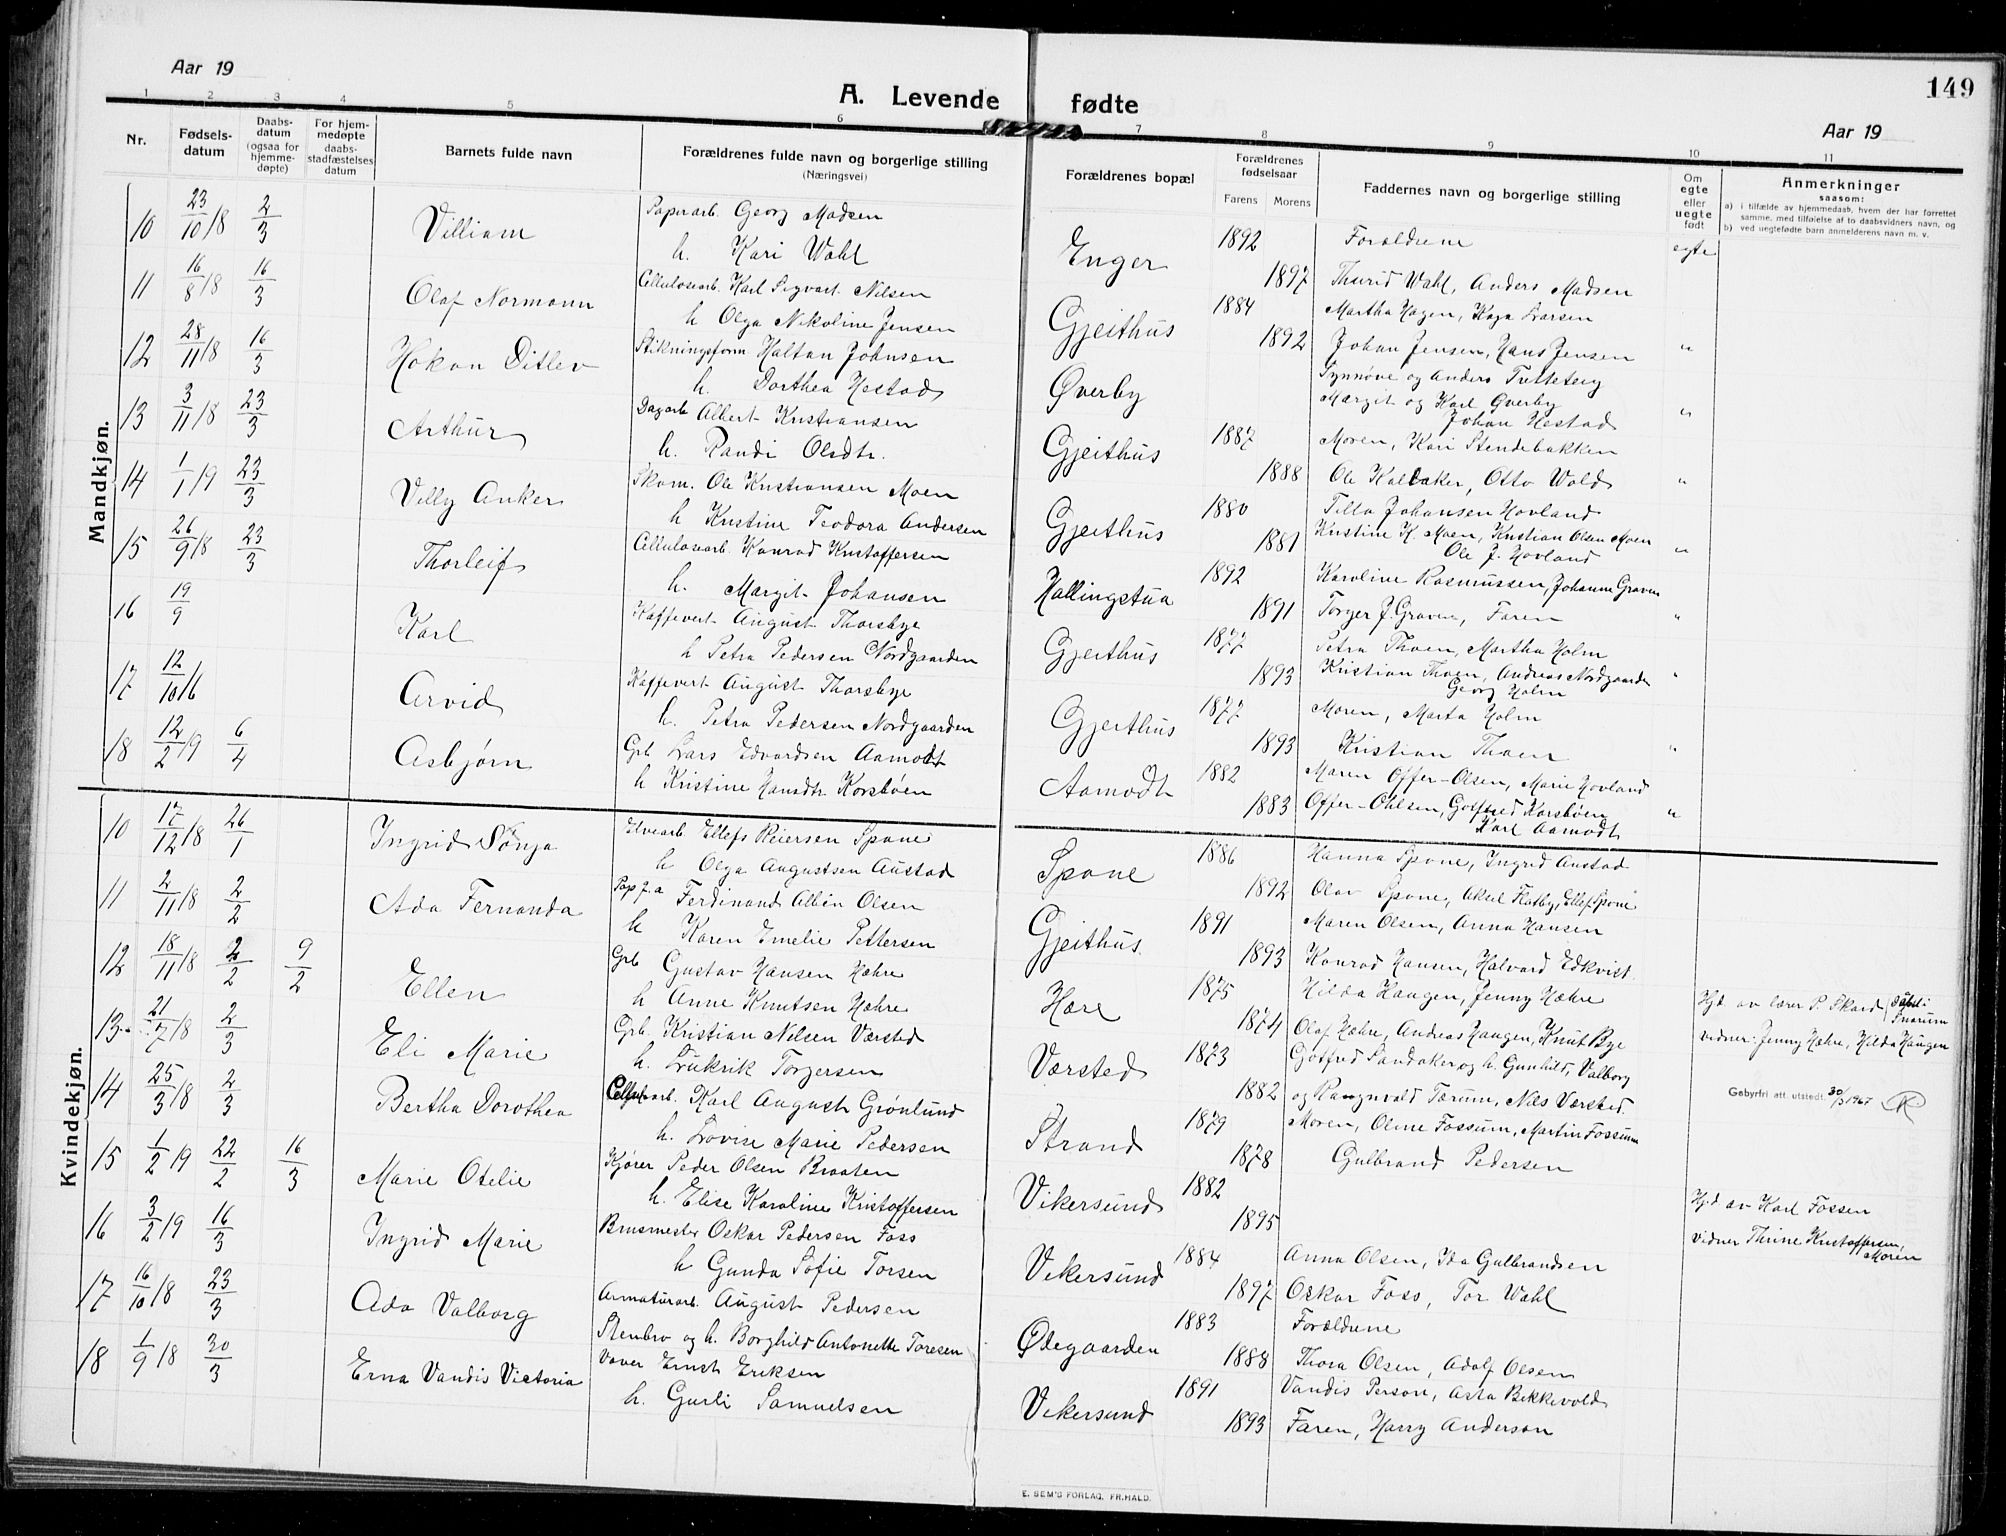 Aar 19
A. Levende fødte
149
Aar 19
1 2 3 4 5 6 7 8 9 10 11
Nr.
Fødsels-
datum
Daabs-
datum
(ogsaa for
hjemme-
døpte)
For hjem-
medøpte
daabs-
stadfæstelses
datum
Barnets fulde navn
Forældrenes fulde navn og borgerlige stilling
(Næringsvei)
Forældrenes bopæl
Forældrenes
fødselsaar
Farens Morens
Faddernes navn og borgerlige stilling
Om
egte
eller
uegte
født
Anmerkninger
saasom:
a) i tilfælde av hjemmedaab, hvem der har forrettet
samme, med tilføielse af to daabsvidners navn, og
b) ved uegtefødte barn anmelderens navn m. v.
Mandkjøn.
10 23/10 18 2/3 Villiam Papirarb. Georg Madsen Enger 1892 Forældrene egte
h. Kari Wahl 1897 Thurid Wahl, Anders Madsen
11 16/8 18 16/3 Olaf Normann Cellulosearb. Karl Sigvart Nilsen Gjeithus 1884 Martha Hagen, Kaja Larsen
h Olga Nikoline Jensen 1892 Johan Jensen, Hans Jensen "
12 28/11 18 16/3 Hakon Ditlev Stikningsform Halfan Johnsen Øverby Synnøve og Anders Tutteteig
h. Dorthea Hestad Margit og Karl Øverby "
Johan Hestad
13 3/11 18 23/3 Arthur Dagarb Albert Kristiansen Gjeithus 1887 Moren, Kari Stendebakken
h. Randi Olsdtr. 1888 Ole Kalbaker, Otto Wold "
14 1/1 19 23/3 Villy Anker Skom. Ole Kristiansen Moen Gjeithus 1880 Tilla Johansen Hovland
h Kristine Teodora Andersen 1881 Kristine K. Moen, Kristian Olsen Moen "
Ole J. Hovland
15 26/9 18 23/3 Thorleif Cellulosearb. Konrad Kristoffersen Hallingstua 1892 Karoline Rasmussen, Johanne Graven
h. Margit Johansen 1891 Torger J. Graven, Faren "
16 19/9 Karl Kaffevert August Thorsbye Gjeithus 1877 Petra Thoen, Martha Holm
h Petra Pedersen Nordgaarden 1893 Kristian Thoen, Andreas Nordgaarden "
Georg Holm
17 12/10 16 Arvid Kaffevert August Thorsbye Gjeithus 1877 Moren, Marta Holm
h. Petra Pedersen Nordgaarden 1893 Kristian Thoen "
18 12/2 19 6/4 Asbjørn Grb Lars Edvardsen Aamodt Aamodt 1882 Maren Offer-Olsen, Marie Hovland
h Kristine Hansdtr Korsbøen 1883 Offer-Ohlsen, Gotfred Korsbøen "
Karl Aamodt
Kvindekjøn.
10 17/12 18 26/1 Ingrid Sonja Elvearb Ellefs Reiersen Spone Spone 1886 Hanna Spone, Ingrid Austad
h Olga Augustsen Austad 1892 Olav Spone, Aksel Flatby, Ellef Spone
11 2/11 18 2/2 Ada Fernanda Pap f. a Ferdinand Albin Olsen Gjeithus 1891 Maren Olsen, Anna Hansen
h Karen Emelie Pettersen 1893 Konrad Hansen, Halvard Edkvist.
12 18/11 18 2/2 9/2 Ellen Grb Gustav Hansen Hæhre Hære 1875 Hilda Haugen, Jenny Hæhre Hjd av lærer P. Skard (Døbt i Snarum
h Anne Knutsen Hæhre 1874 Olaf Hæhre, Andreas Haugen, Knut Bye vidner: Jenny Hæhre, Hilda Haugen
13 21/7 18 2/3 Eli Marie Grb. Kristian Nilsen Værsted Værsted 1873 Gotfred Sandaker og h. Gunhild, Valborg
h. Lukrik Torgersen 1882 og Ragnvald Tærum, Nils Værsted. Gebyrfri att. utstedt 30/3 1967
14 25/3 18 2/3 Bertha Dorothea Cellulosearb. Karl August Grønlund Strand 1879 Moren, Oline Fossum, Martin Fossum
h. Lovise Marie Pedersen 1878 Gulbrand Pedersen
15 1/2 19 22/2 16/3 Marie Otelie Kjører Peder Olsen Braaten Vikersund 1882 Hjd av Karl Fossen
h. Elise Karoline Kristoffersen 1895 vidner Thrine Kristoffersen,
Moren
16 3/2 19 16/3 Ingrid Marie Brusmester Oskar Pedersen Foss Vikersund 1884 Anna Olsen, Ida Gulbrandsen
h Gunda Sofie Torsen 1897 Oskar Foss, Tor Wahl
17 16/10 18 23/3 Ada Valborg Armaturarb. August Pedersen Ødegaarden 1883 Forældrene
Stenbro og h. Borghild Antonette Toresen 1888 Thora Olsen, Adolf Olsen
18 1/9 18 30/3 Erna Vandis Victoria Vaver Ernst Eriksen Vikersund 1891 Vandis Person, Asta Bekkevold
h. Gurli Samuelsen 1893 Faren, Harry Anderson
E. SEM'S FORLAG, FR.HALD.